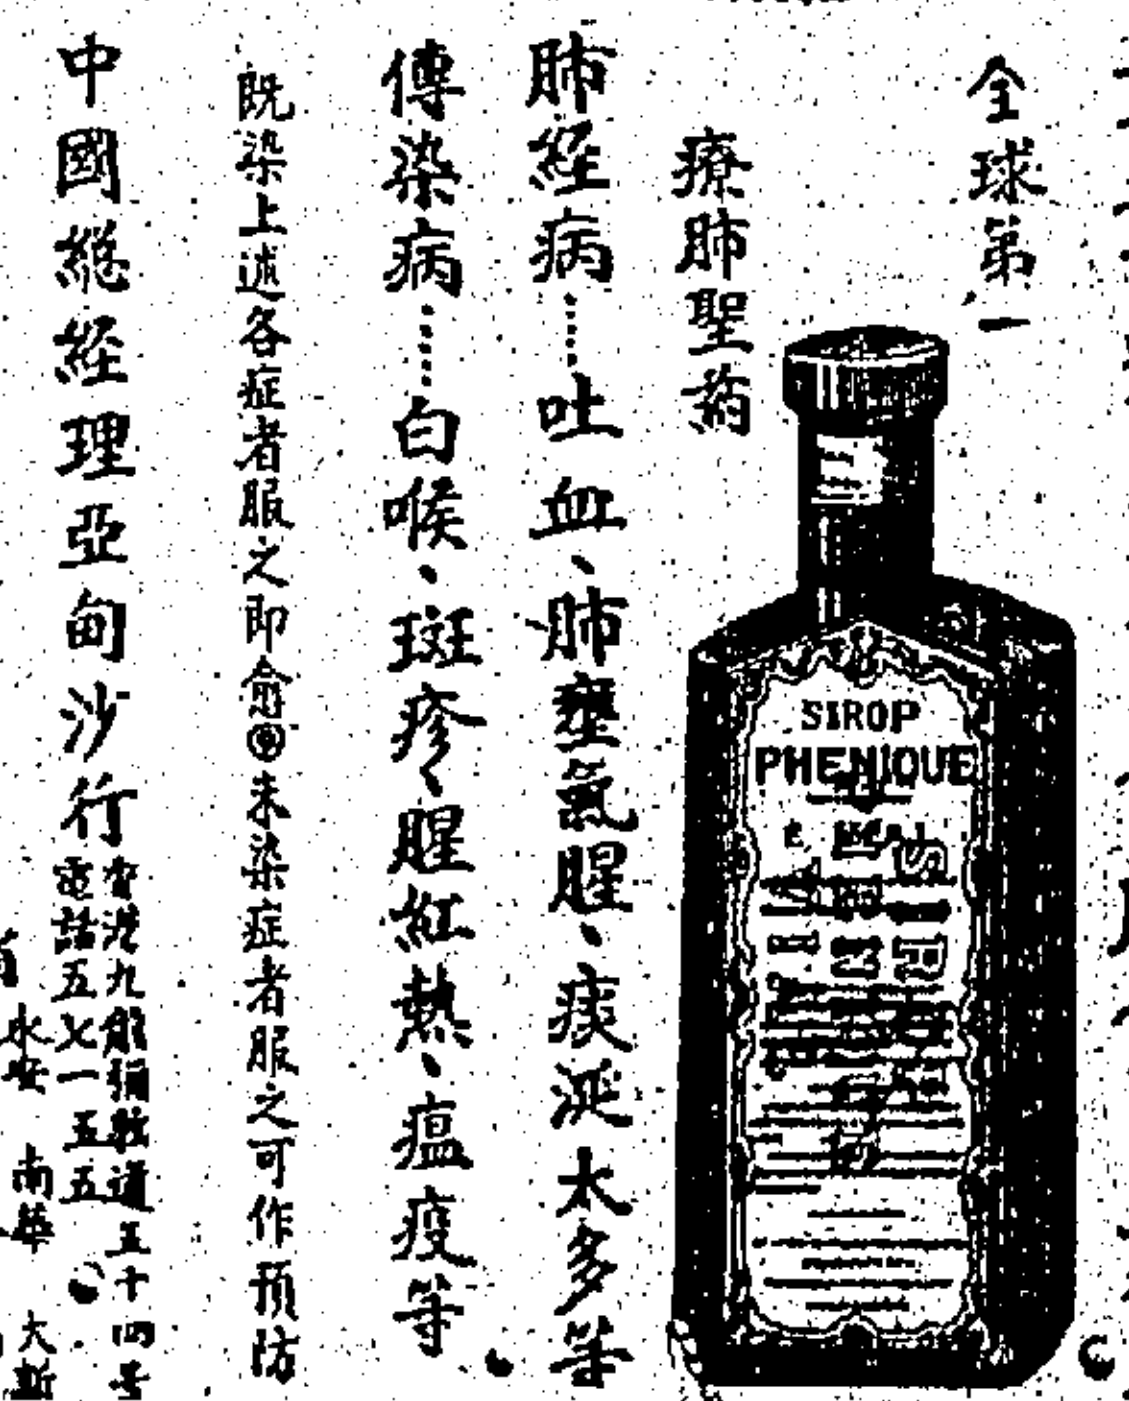 全球第一
療肺聖药
SIROP
PHENIQUE
肺経病……吐血、肺壅氣腥、痰涎太多等
傳染病……白喉、斑疹、腥紅熱、瘟疫等
既染上述各症者服之即愈◎未染症者服之可作預防
中國総経理亞甸沙行
香港九龍彌敦道五十四号
電話五七一五五
永安 南華 大新